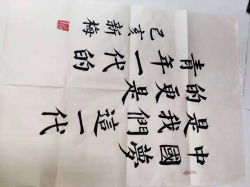 中國夢
是我們這一代
的更是
青年一代的
己亥 新梅